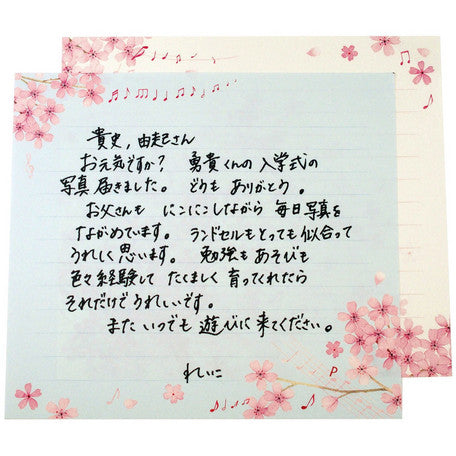 貴史,由起さん
お元気ですか? 勇貴くんの入学式の
写真届きました。どうもありがとう。
お父さんも にこにこしながら 毎日写真を
ながめています。ランドセルもとっても似合って
うれしく思います。勉強もあそびも
色々経験して たくましく 育ってくれたら
それだけでうれしいです。
また いつでも 遊びに来てください。
れいこ
P